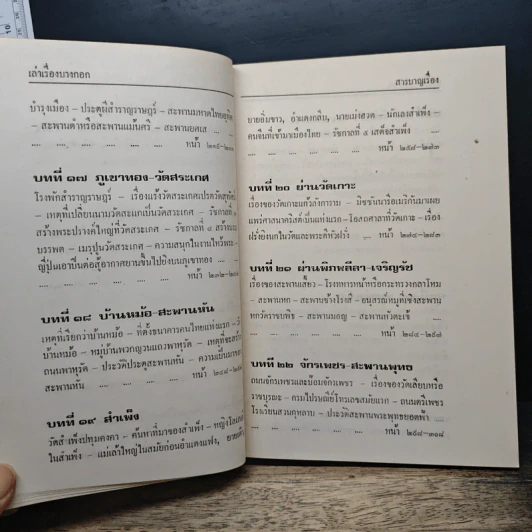 เล่าเรื่องบางกอก
บำรุงเมือง – ประตูผีสำราญราษฎร์ – สะพานมหาดไทยอุทิศ
– สะพานดำหรือสะพานแม้นศรี – สะพานยศเส .... ....
.... .... .... .... .... หน้า
บทที่ ๑๗ ภูเขาทอง-วัดสระเกศ
โรงพักสำราญราษฎร์ – เรื่องแร้งวัดสระเกศเปรตวัดสุทัศน์
– เหตุที่เปลี่ยนนามวัดสะแกเป็นวัดสระเกศ – รัชกาลที่
สร้างพระปรางค์ใหญ่ที่วัดสระเกศ – รัชกาลที่ ๔ สร้าง
บรรพต – เมรุปูนวัดสระเกศ – ความสนุกในงานไหว้พระ
ญี่ปุ่นเอาปืนต่อสู้อากาศยานขึ้นไปยิงบนภูเขาทอง ....
.... .... .... .... .... หน้า ๒๓๒-
บทที่ ๑๘ บ้านหม้อ-สะพานหัน
เหตุที่เรียกว่าบ้านหม้อ – ที่ตั้งธนาคารคนไทยแห่งแรก –
บ้านหม้อ – หมู่บ้านพวกญวนแถวพาหุรัด – เหตุที่จะสร้าง
ถนนพาหุรัด – ประวัติประตูสะพานหัน – ความเป็นมาของ
สะพานหัน .... .... .... .... หน้า ๒๔๘-
บทที่ ๑๙ สำเพ็ง
วัดสำเพ็งปทุมคงคา – ค้นหาที่มาของสำเพ็ง – หญิงโสเภณี
ในสำเพ็ง – แม่เล้าใหญ่ในสมัยก่อนอำแดงแฟง,
สารบาญเรื่อง
ยายอิ่มขาว, อำแดงกลิ่น, นายเม่งฮวด – นักเลงสำเพ็ง –
คนจีนที่เข้ามาเมืองไทย – รัชกาลที่ ๕ เสด็จสำเพ็ง
.... .... .... .... .... หน้า ๒๕๙-๒๗๓
บทที่ ๒๐ ย่านวัดเกาะ
เรื่องของวัดเกาะแก้วลังการาม – มิชชันนารีอเมริกันมาเผย
แพร่ศาสนาคริสต์เป็นแห่งแรก – โอสถศาลาที่วัดเกาะ – เรื่อง
ฝรั่งยิงนกในวัดและพระตีหัวฝรั่ง .... หน้า ๒๗๔-๒๘๓
บทที่ ๒๑ ผ่านพิภพลีลา-เจริญรัช
เรื่องของสะพานเสี้ยว – โรงทหารหน้าหรือกระทรวงกลาโหม
– สะพานหก – สะพานช้างโรงสี – อนุสรณ์หมูที่เชิงสะพาน
หน้าวัดราชบพิธ – สะพานมอญ – สะพานหัวตะเข้
.... .... .... .... .... หน้า ๒๘๔-๒๙๗
บทที่ ๒๒ จักรเพชร-สะพานพุทธ
ถนนจักรเพชรและป้อมจักรเพชร – เรื่องของวัดเลียบหรือ
ราชบูรณะ – กรมไปรษณีย์โทรเลขสมัยแรก – ถนนตรีเพชร
โรงเรียนสวนกุหลาบ – ประวัติสะพานพระพุทธยอดฟ้า
.... .... .... .... .... หน้า ๒๙๘-๓๐๘